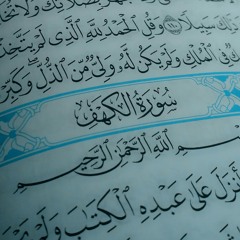 بِصَلَاتِكَ وَلَا تُخَا
ذَٰلِكَ سَبِيلًا ١١٠ وَقُلِ ٱلْحَمْدُ لِلَّهِ ٱلَّذِى لَمْ يَتَّخِذْ
فِى ٱلْمُلْكِ وَلَمْ يَكُن لَّهُۥ وَلِىٌّ مِّنَ ٱلذُّلِّ وَكَبِّرْ
سُورَةُ ٱلْكَهْفِ
بِسْمِ ٱللَّهِ ٱلرَّحْمَٰنِ ٱلرَّحِيمِ
أَنزَلَ عَلَىٰ عَبْدِهِ ٱلْكِتَٰبَ وَلَمْ